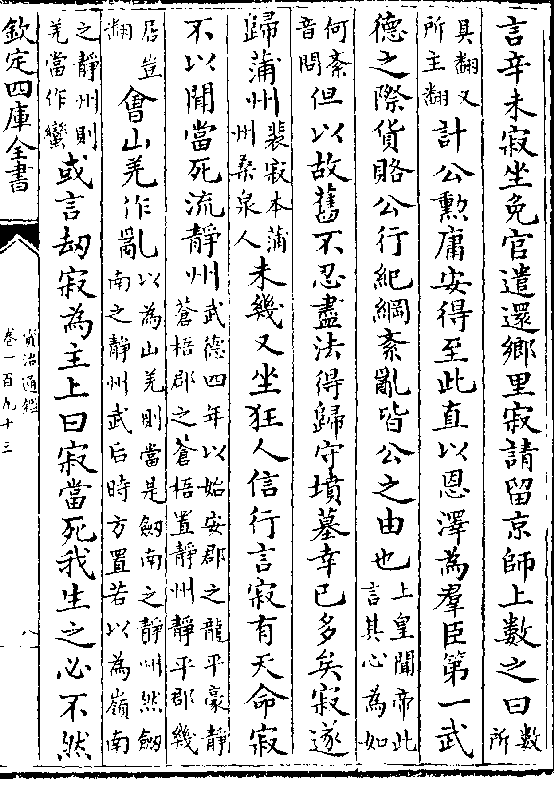 言辛未寂坐免官遣還鄉里寂請留京師上數之曰數所
具翻又所主翻計公勲庸安得至此直以恩澤為羣臣第一武
德之際貨賂公行紀綱紊亂皆公之由也上皇聞帝此言其心為如
何紊音問但以故舊不忍盡法得歸守墳墓幸已多矣寂遂
歸蒲州裴寂本蒲州桑泉人未幾又坐狂人信行言寂有天命寂
不以聞當死流静州武德四年以始安郡之龍平豪静蒼梧郡之蒼梧置静州静平郡幾
居豈翻會山羌作亂以為山羌則當是劔南之静州然劔南之静州武后時方置若以為嶺南
之静州則羌當作蠻或言刼寂為主上曰寂當死我生之必不然
欽定四庫全書
資治通鑑
卷一百九十三
八